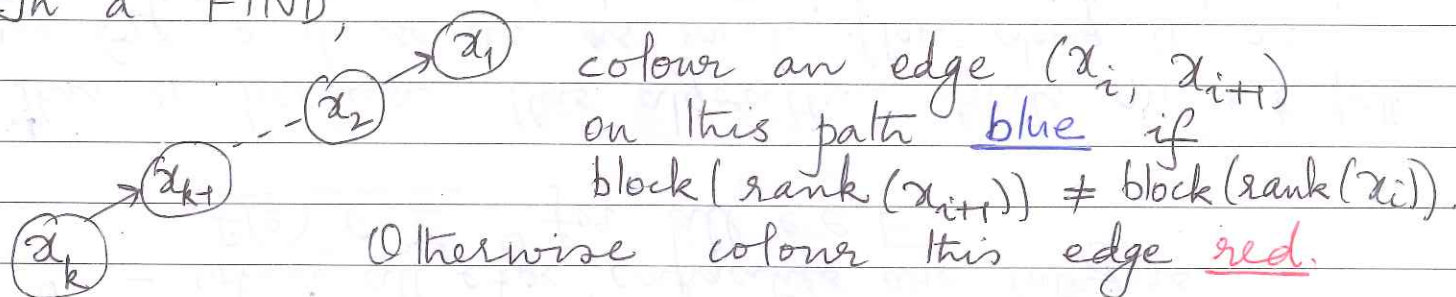 In a FIND,
x₁ colour an edge (xᵢ, xᵢ₊₁)
x₂ on this path blue if
xₖ₋₁ block(rank(xᵢ₊₁)) ≠ block(rank(xᵢ)).
xₖ Otherwise colour this edge red.